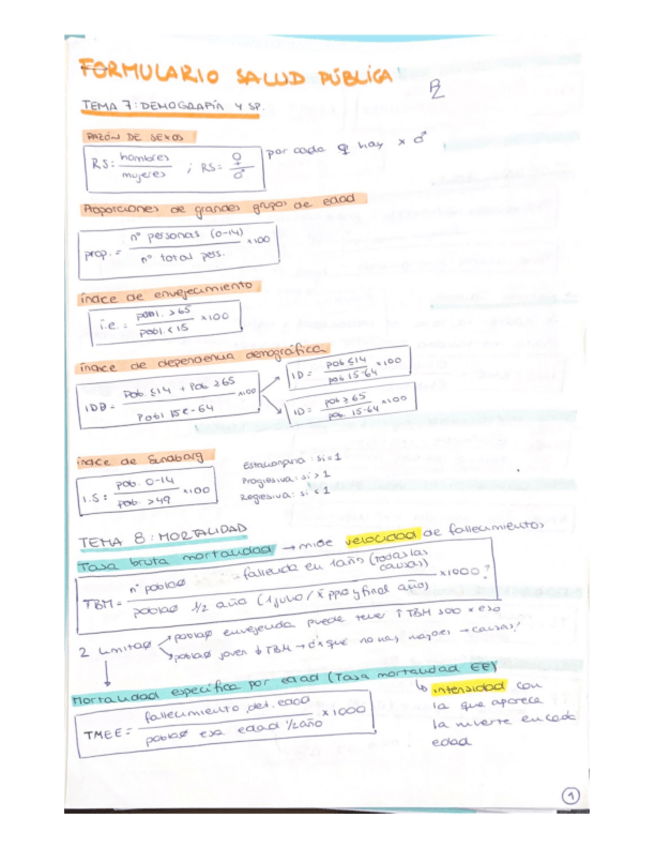 FORMULARIO SALUD PÚBLICA
TEMA 7: DEMOGRAFÍA Y SP.
RAZÓN DE SEXOS
RS: hombres / mujeres ; RS = ♀ / ♂ por cada ♀ hay x ♂
Proporciones de grandes grupos de edad
prop. = nº personas (0-14) / nº total pers. x100
índice de envejecimiento
i.e. = pobl. >65 / pobl. <15 x100
índice de dependencia demográfica
IDD = Pob ≤14 + Pob ≥65 / Pobl 15-64 x100
ID = pob ≤14 / pob 15-64 x100
ID = pob ≥65 / pob 15-64 x100
índice de Sundbarg
I.S = pob. 0-14 / pob >49 x100
Estacionaria: si = 1
Progresiva: si > 1
Regresiva: si < 1
TEMA 8: MORTALIDAD
Tasa bruta mortalidad → mide velocidad de fallecimientos
TBM = nº poblaø fallecida en 1 año (todas las causas) / poblaø 1/2 año (1 julio / x̄ ppo y final año) x1000?
2 límitaø → poblaø envejecida puede tener ↑ TBM solo x eso
→ poblaø joven ↓ TBM →
Mortalidad específica por edad (Tasa mortalidad EE)
TMEE = fallecimiento det. edad / poblaø esa edad 1/2 año x1000
↳ intensidad con
la que aparece
la muerte en cada
edad
1